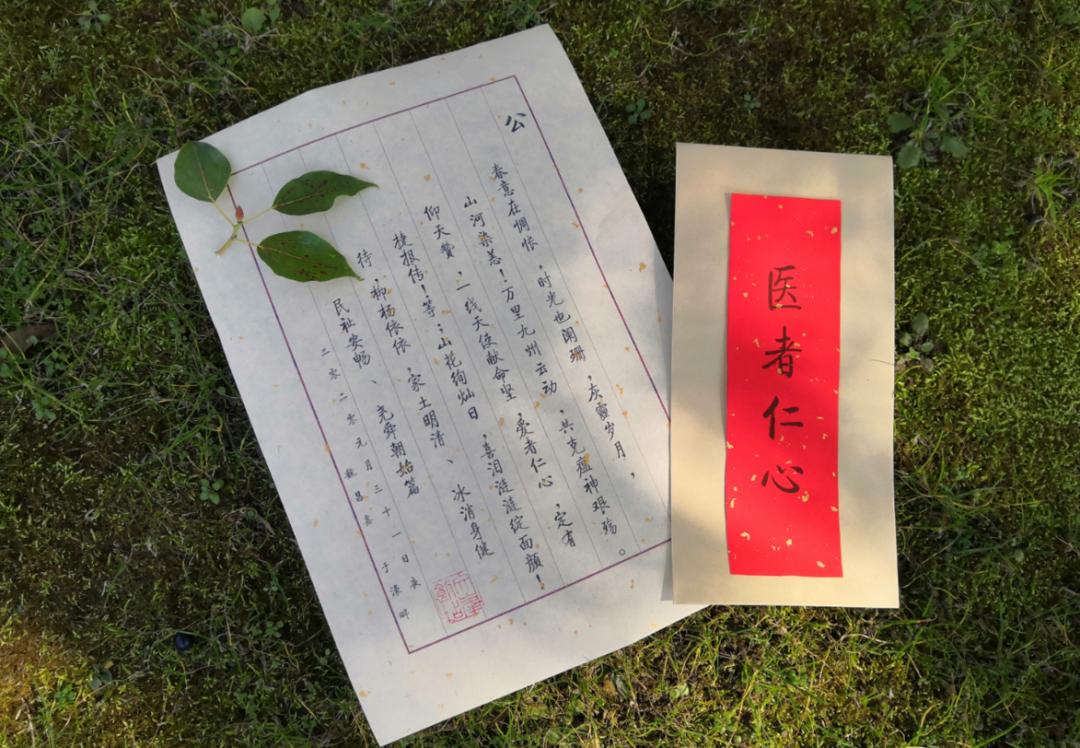 公
春意在惆怅，时光也阑珊，灰霾岁月，
山河染恙！万里九州云动，共克瘟神艰殇。
仰天赞，一线天使献命坚，爱者仁心，定有
捷报传！等；山花绚灿日，喜泪涟涟绽面颜！
待，柳杨依依，家土明清、冰消身健
民祉安畅、尧舜朝始篇
二零二零元月三十一日
昌
于 畔
医者仁心